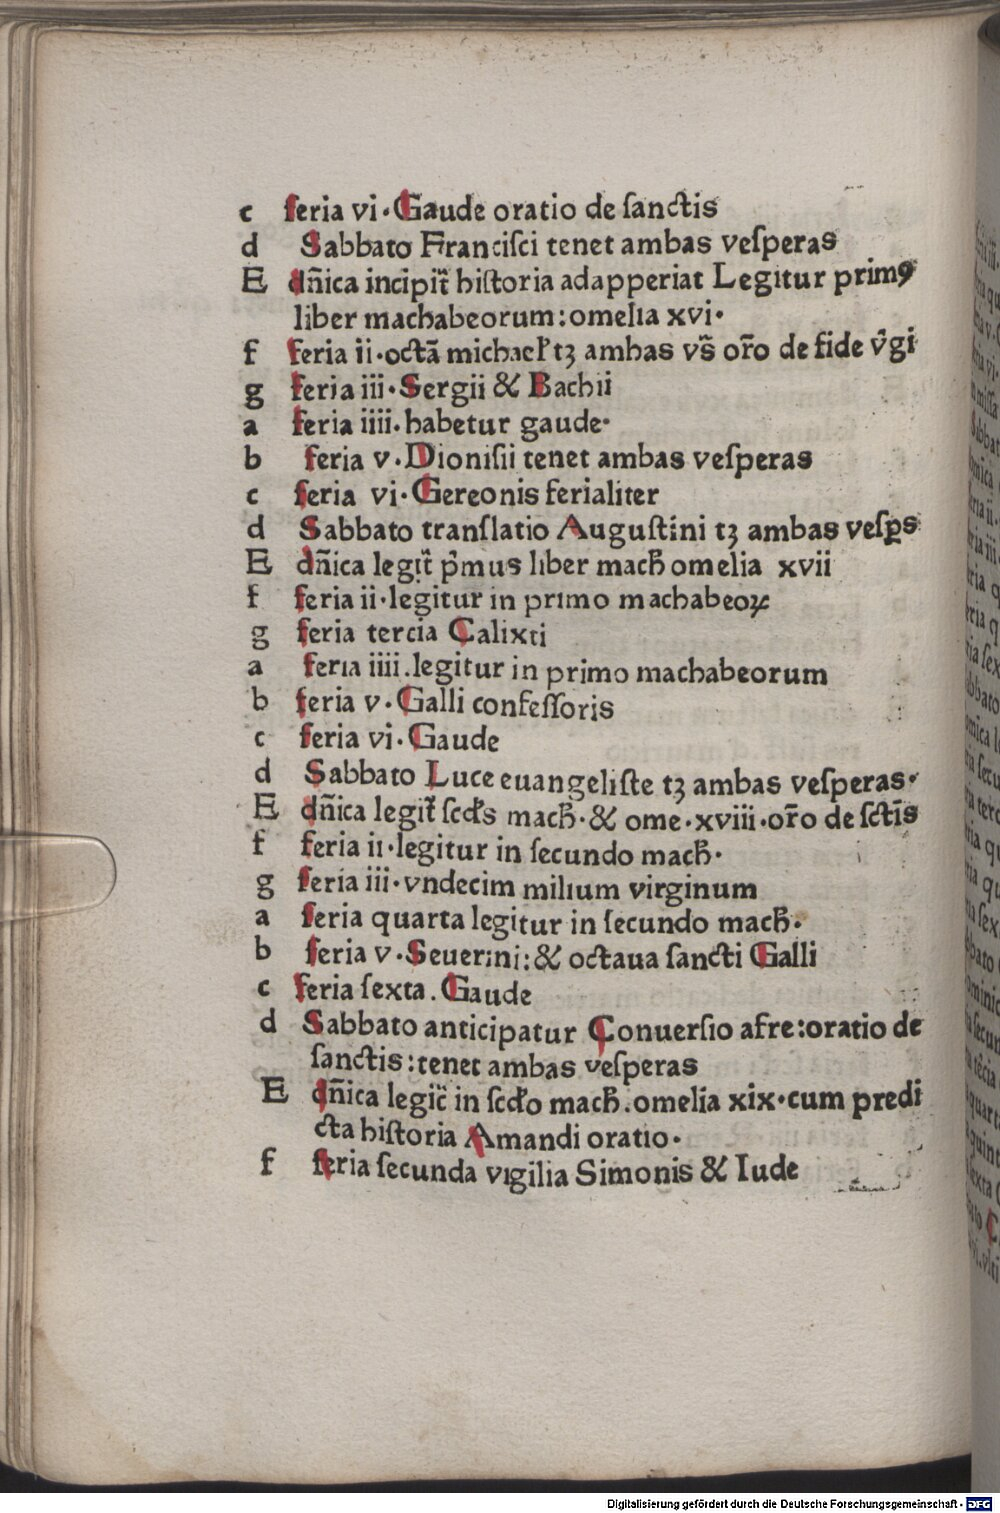 c feria vi·Gaude oratio de ſanctis
d Sabbato Franciſci tenet ambas veſperas
E dn̄ica incipit᷑ hiſtoria adapperiat Legitur primꝯ
liber machabeorum:omelia xvi·
f feria ii·octā michael' tʒ ambas vs̄ or̄o de fide v̂gi
g feria iii·Sergii & Bachii
a feria iiii·habetur gaude·
b feria v·Dioniſii tenet ambas veſperas
c feria vi·Gereonis ferialiter
d Sabbato tranſlatio Auguſtini tʒ ambas veſꝑs
E dn̄ica legit᷑ p̂mus liber macħ omelia xvii
f feria ii·legitur in primo machabeoꝝ
g feria tercia Calixti
a feria iiii.legitur in primo machabeorum
b feria v·Galli confeſſoris
c feria vi·Gaude
d Sabbato Luce euangeliſte tʒ ambas veſperas·
E dn̄ica legit᷑ ſcd's macħ·& ome·xviii·or̄o de ſct̄is
f feria ii·legitur in ſecundo macħ·
g feria iii·vndecim milium virginum
a feria quarta legitur in ſecundo macħ·
b feria v·Seuerini:& octaua ſancti Galli
c feria ſexta.Gaude
d Sabbato anticipatur Conuerſio afre:oratio de
ſanctis:tenet ambas veſperas
E dn̄ica legit᷑ in ſcd'o macħ.omelia xix·cum predi
cta hiſtoria Amandi oratio·
f feria ſecunda vigilia Simonis & Iude
Digitalisierung gefördert durch die Deutsche Forschungsgemeinschaft - DFG